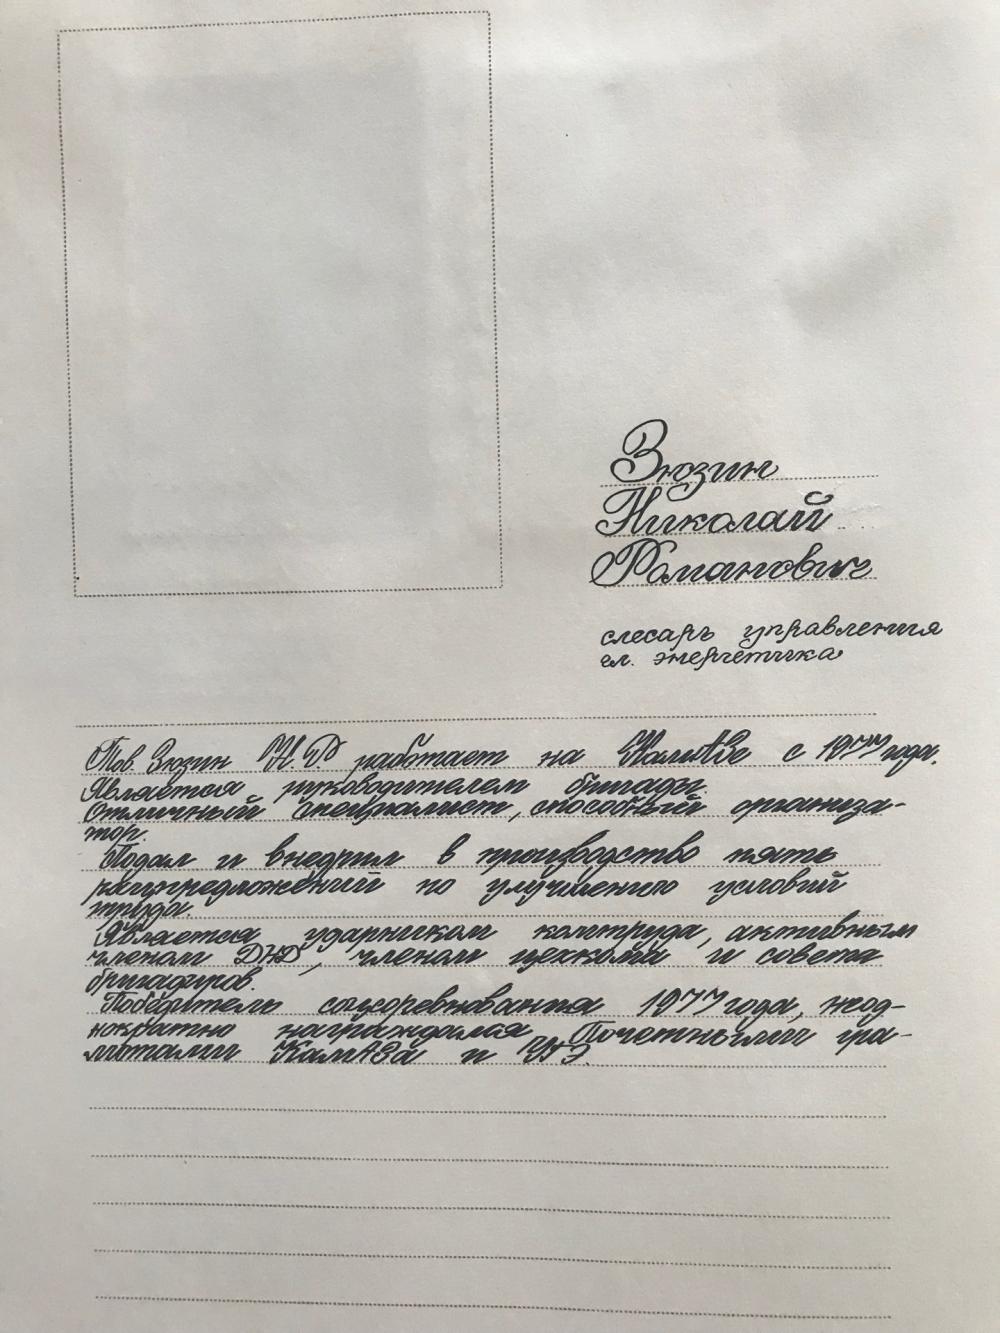 Зюзин
Николай
Романович
слесарь управления
гл. энергетика
Тов Зюзин Н.Р работает на КамАЗе с 1977 года.
Является руководителем бригады.
Отличный специалист, способный организа-
тор.
Подал и внедрил в производство пять
рацпредложений по улучшению условий
труда.
Является ударником комтруда, активным
членом ДНД, членом цехкома и совета
бригадиров.
Победитель соцсоревнования 1977 года, неод-
нократно награждался Почетными гра-
мотами КамАЗа и УГЭ.